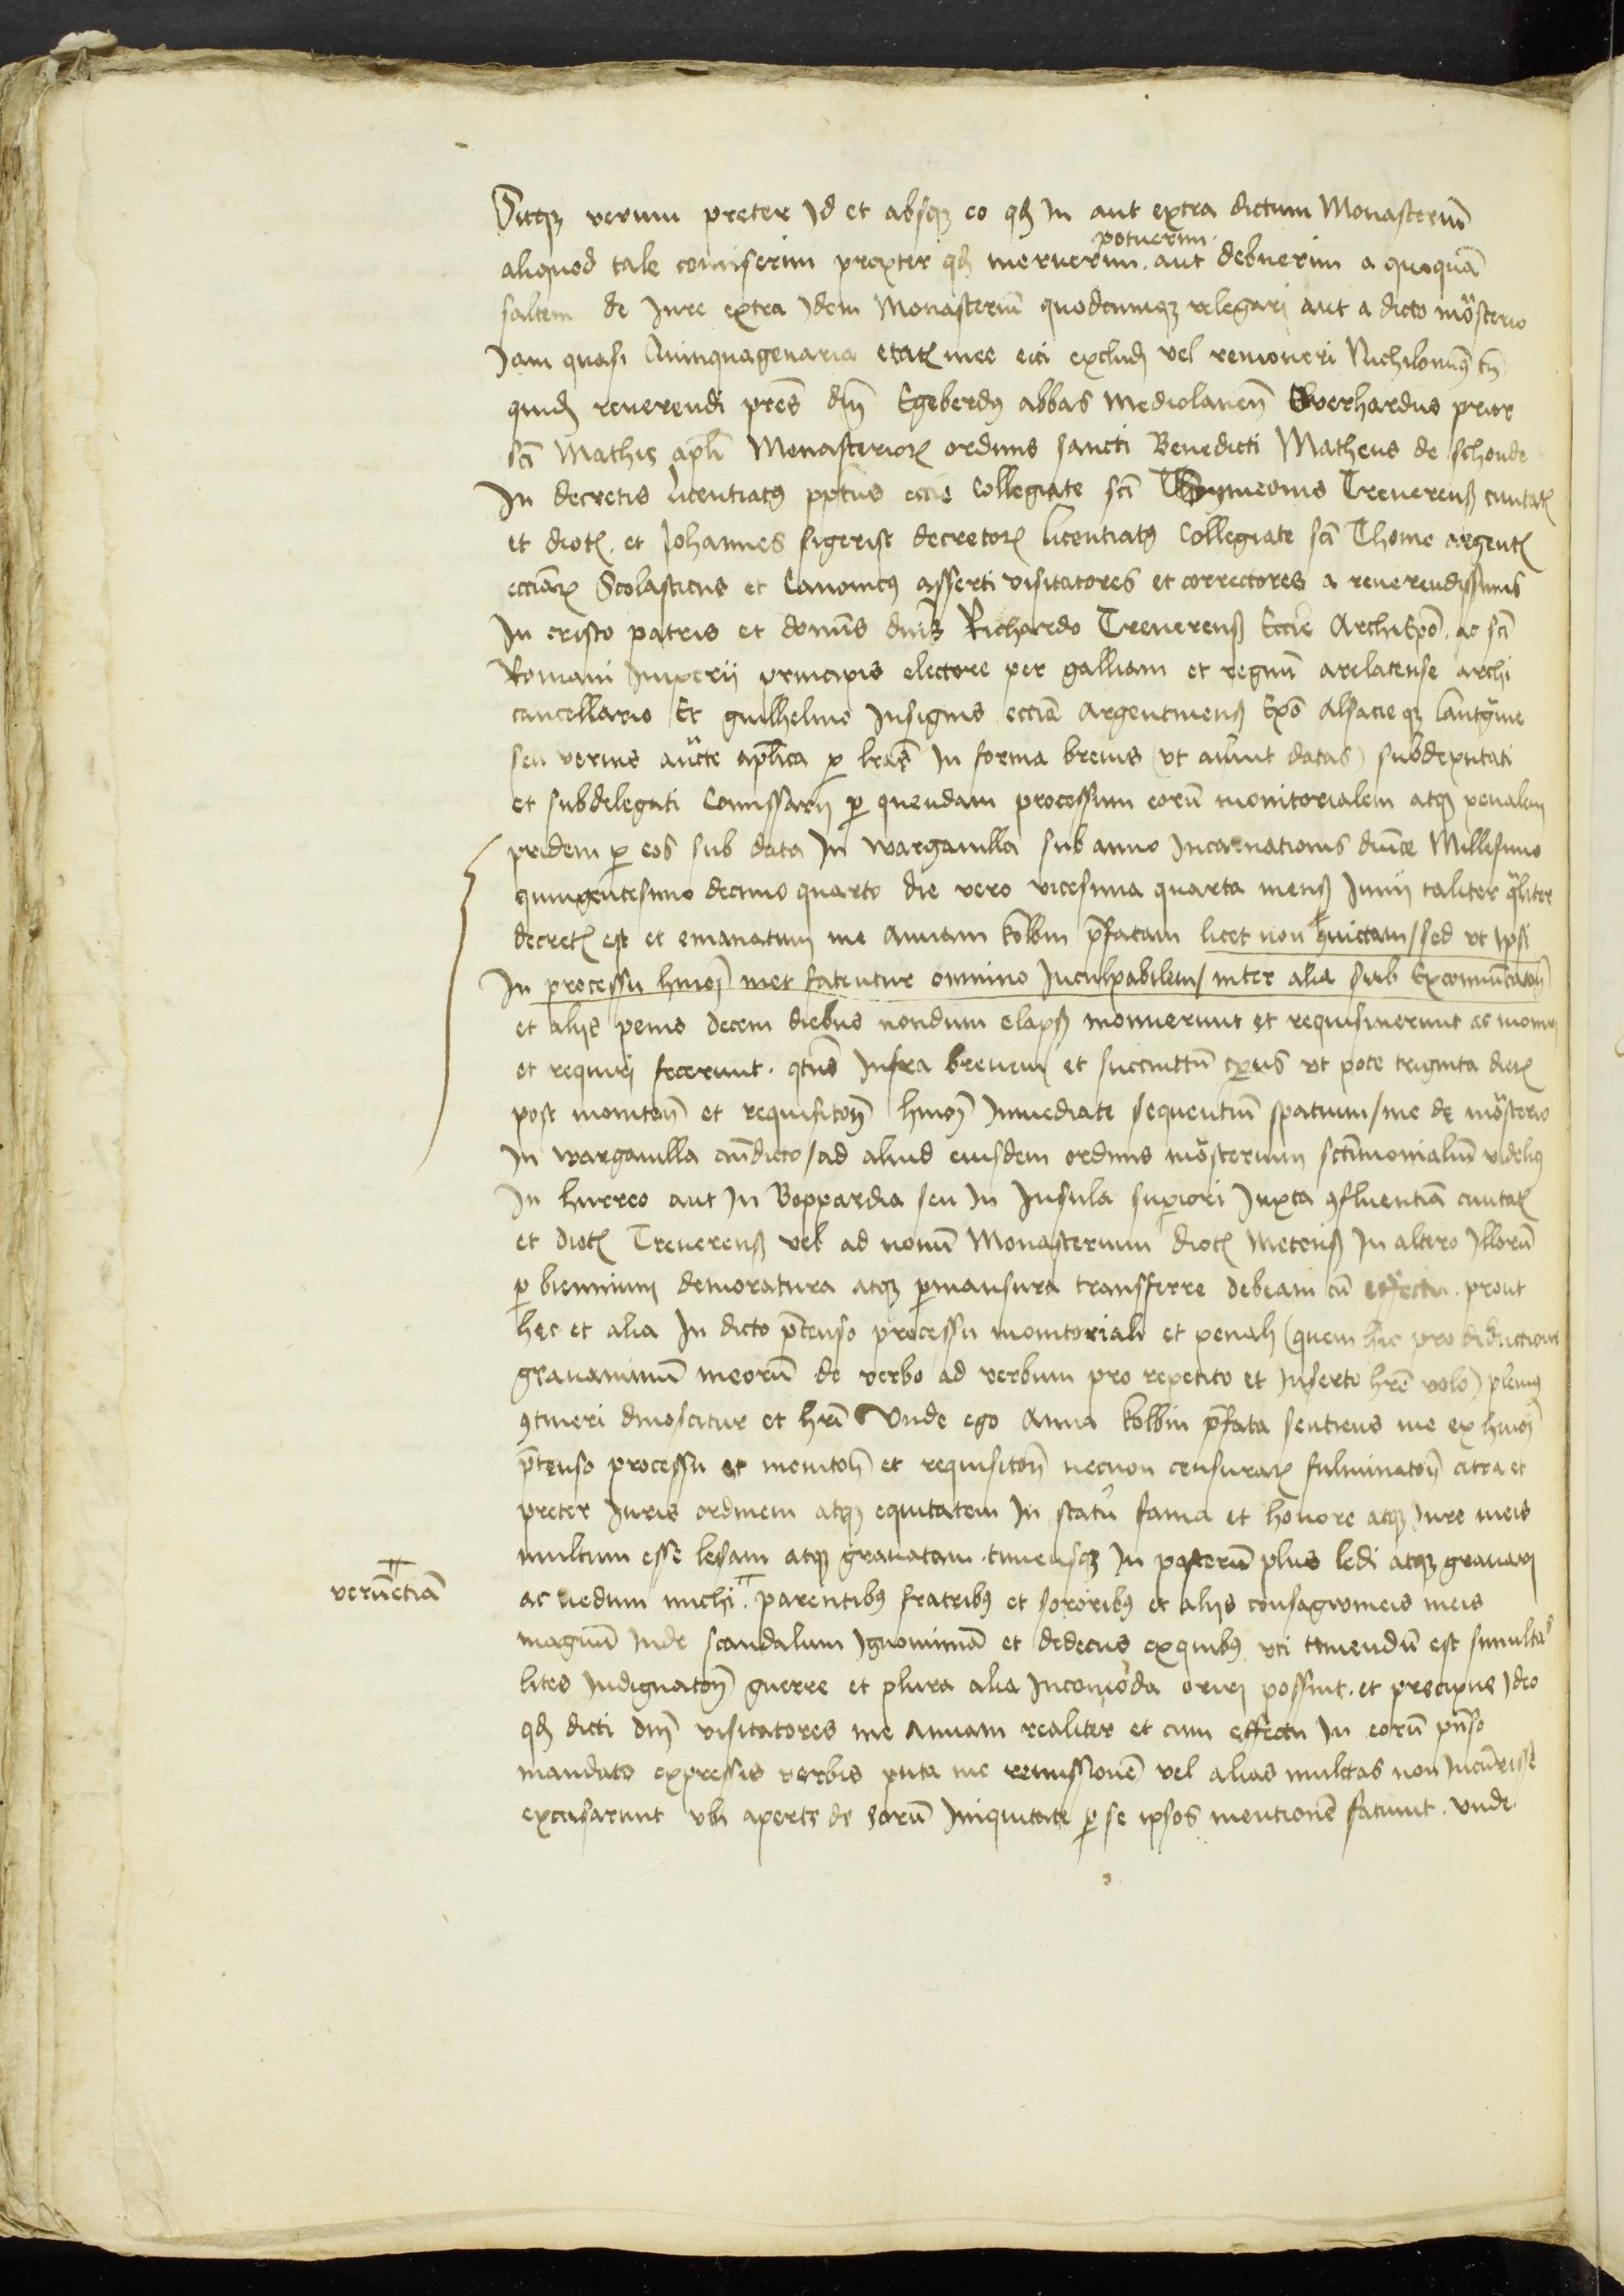 Sitqz verum preter Id et absqz eo qd In aut extra dictum Monasteriū
potuerim.
aliquod tale comiserim propter qd meruerim. aut debuerim a quoquā
saltem de Jure extra Idem Monasteriū quodcumqz relegari aut a dicto mōsterio
Jam quasi Quinquagenaria etatꝭ mee eici excludj vel remoueri Nichilominꝰ tn̄
quidē reuerendi pres dn̄j Egeberdꝰ abbas Mediolaneñ Eberhardus prior
sc̄i Mathie apl̄i Monasterioꝝ ordinis sancti Benedicti Matheus de schonde
In decretis licentiatꝰ ppt̄us eccie Collegiate sc̄i Symeonis Treuerenß ciuitatꝭ
et diocꝭ. et Johannes sigerist decretoꝝ licentiatꝰ Collegiate sc̄i Thome argentꝭ
eccl̄iaꝝ Scolasticus et Canonicꝰ asserti visitatores et correctores a reuerendissimis
In cristo patris et domīs dn̄is Richardo Treuerenß Ecc̄ie Archiep̄o. ac sc̄i
Romani Imperij principis electore per galliam et regnū arelatense archi
cancellario Et guilhelmo Insignis eccl̄ia Argentinenß Ep̄o Alsacie qz lantg̈uie
seu verius auc̄te aplīca ꝑ lr̄as In forma breuis (vt aiunt datas) subdeputati
et subdelegati Comissarij ꝑ quendam processum eorū monitorialem atqz penalem
pridem ꝑ eos sub data In wargauilla sub anno Incarnationis dn̄ice Millesimo
quingentesimo decimo quarto die vero vicesima quarta menß Junij taliter qͣliter
decretꝭ est et emanatum me Annam kolbin p̄fatam licet non ꝯuictam / sed vt ipsi
In processu hmoj̄ met fatentur omnino Inculpabilem / inter alia sub Excomūicatoñ
et alijs penis decem diebus nondum elapß monuerunt et requisiuerunt ac monerj
et requirj fecerunt. qtn̄s Infra breuem et succinctū tp̄us vt pote triginta dieꝝ
post monitoñ et requisitoñ hmoj̄ Inmediate sequentiū spatium / me de mōsterio
In wargauilla an̄dicto / ad aliud eiusdem ordinis mōsterium sctīmonialiū videlicꝫ
In hurreo aut In Boppardia seu In Insula superiori Juxta ꝯfluentiā ciuitatꝭ
et diocꝭ Treuerenß vel ad nouū Monasterium diocꝭ Metenß In altero Illorū
ꝑ biennium demoratura atqz ꝑmansura transferre debeam cū effectu. prout
hec et alia In dicto p̄tenso processu monitoriali et penali (quem hic pro deductione
grauaminū meorū de verbo ad verbum pro repetito et Inserto hr̄e volo) plenius
ꝯtineri dinoscitur et hr̄i Vnde ego Anna kolbin p̄fata sentiens me ex hmoj̄
p̄tenso processu et monitoñ et requisitoñ necnon censuraꝝ fulminatoñ citra et
preter Juris ordinem atqz equitatem In statu fama et honore atqz Jure meis
multum esse lesam atqz grauatam. timensqz In posterū plus ledi atqz grauarj
verūetiā
ac nedum michi. parentibꝰ fratribꝰ et sororibꝰ et alijs consagwineis meis
magnū Inde scandalum Ignominiā et dedecus exquibꝰ vti timendū est simultas
lites Indignatoñ guerre et plura alia Incomoda orirj possint. et precipue Ideo
qd dicti dn̄j visitatores me Annam realiter et cum effectu In eorū pn̄so
mandato expressis verbis puta me remissionē vel alias multas non Incūrisse
excusarunt vbi aperte de eorū Iniquitate ꝑ se ipsos mentionē faciunt. vnde